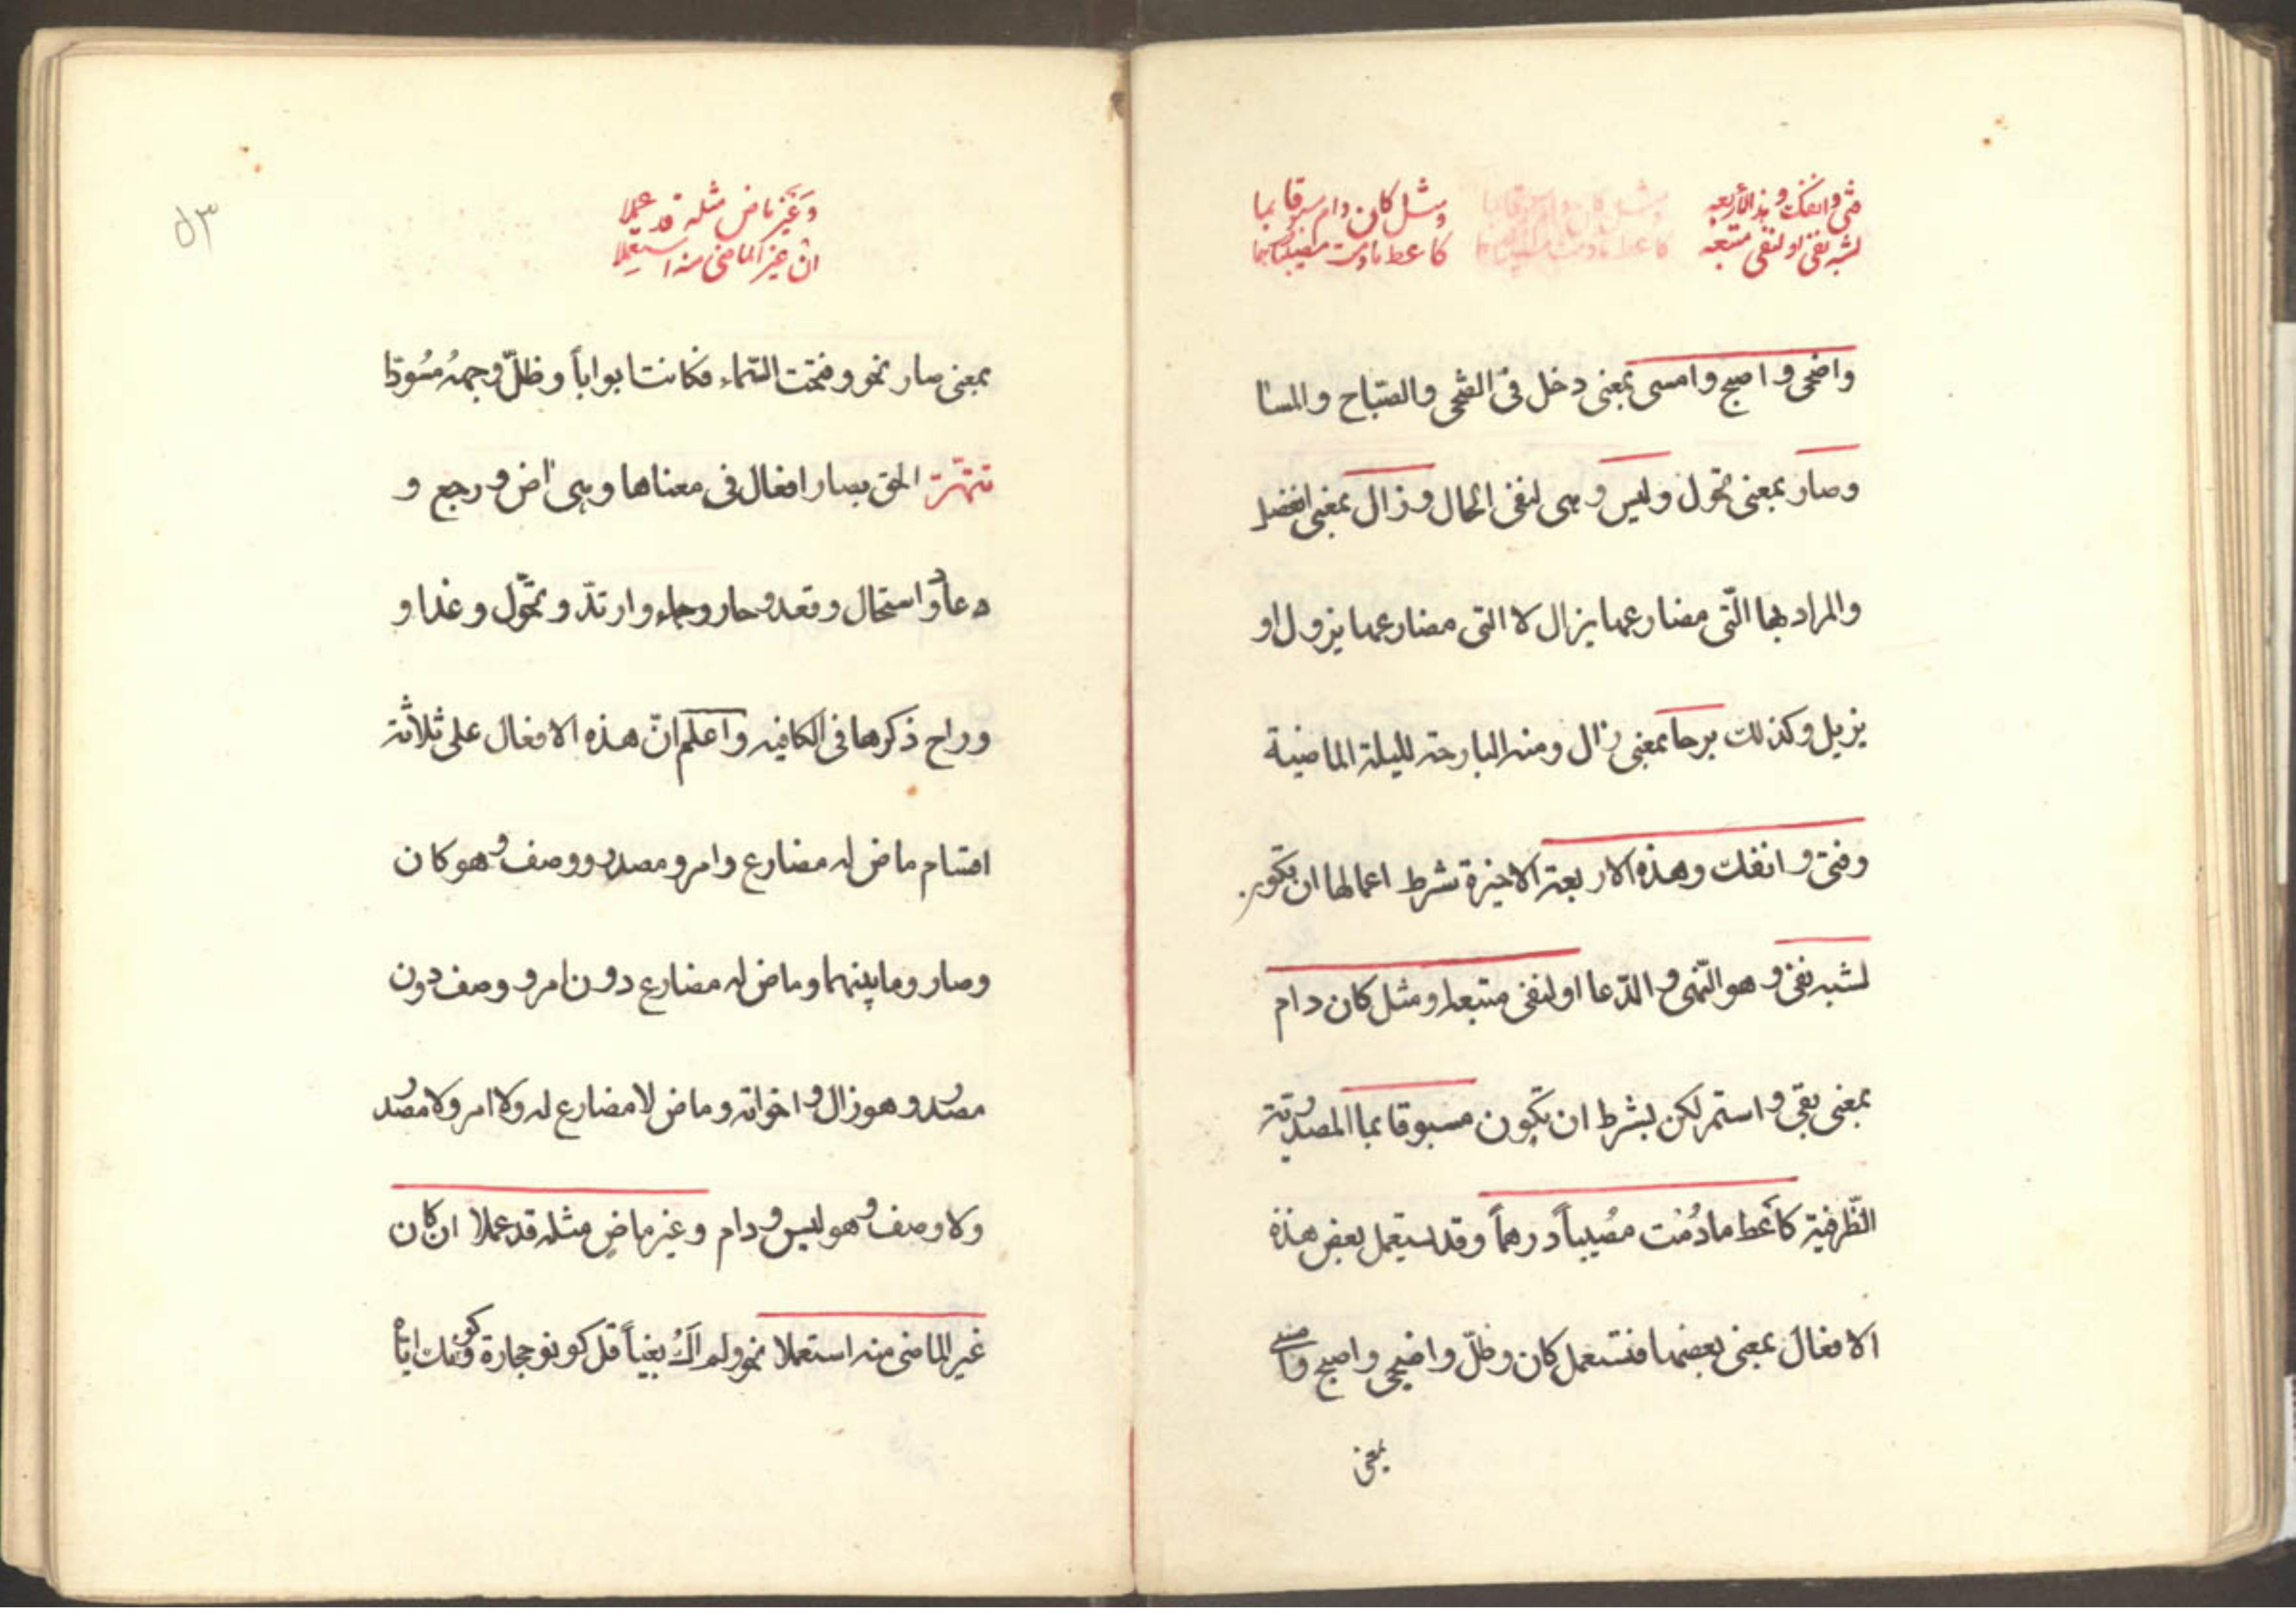 فتئ وانفك وهذى الأربعه
لشبه نفي او لنفي متبعه
ومثل كان دام مسبوقا بما
كاعط مادمت مصيبا درهما
واضحى و اصبح وامسى بمعنى دخل فى الضّحى والصّباح والمسا
وصار بمعنى تحول وليس وهى لنفى الحال وزال بمعنى انفصل
والمراد بها الّتى مضارعها يزال لا التى مضارعها يزول او
يزيل وكذلك برحا بمعنى زال ومنه البارحة لليلة الماضية
وفتئ و انفك وهذه الاربعة الاخيرة شرط اعمالها ان تكون
لشبه نفى و هو النّهى و الدّعا او لنفى متبعه ومثل كان دام
بمعنى بقى و استمر لكن بشرط ان تكون مسبوقا بما المصدريّة
الظّرفية كاَعط مادُمْت مصُيباً درهماً وقد يستعمل بعض هذه
الافعال بمعنى بعضها فتستعمل كان وظلّ واضحى واصبح وامسى
بمعنى
٥٣
وَغَيَر ماض مثله قد عملا
ان غير الماضى منه استعملا
بمعنى صار نحو وفتحت السّماء فكانت ابواباً وظلّ وجههُ مسُودّا
تتمّة الحق بصار افعال فى معناها وهى اض و رجع و
عاد و استحال وقعد و حار وجاء وارتدّ و تحّول وغدا و
وراح ذكرها فى الكافيه واعلم انّ هذه الافعال على ثلاثة
اقسام ماض له مضارع وامر ومصدر ووصف و هو كان
وصار وما بينهما وماض له مضارع دون امر ووصف دون
مصدر و هو زال و اخواته وماض لا مضارع له ولا امر ولا مصدر
ولا وصف و هو ليس و دام وغير ماضٍ مثله قد عملا ان كان
غير الماضى منه استعملا نحو ولم اَكُ بغياً قل كونو حجارة وكونك اياه